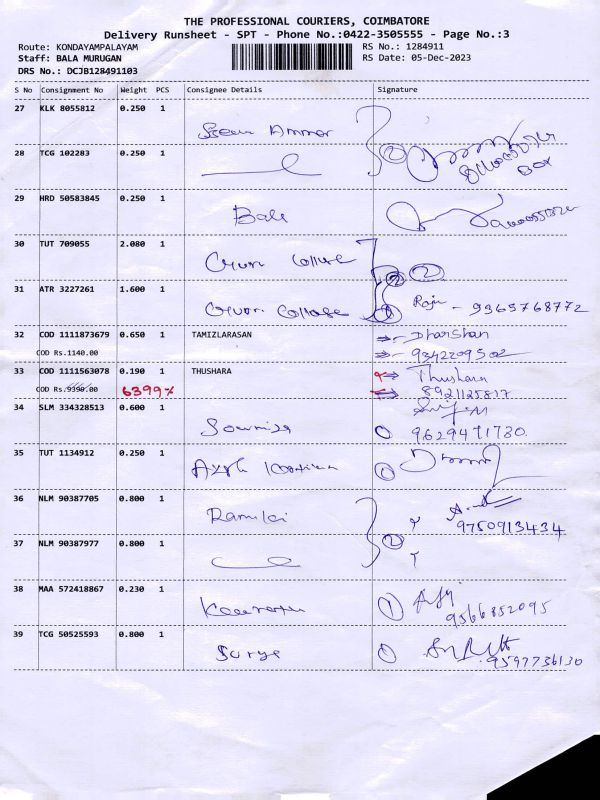 THE PROFESSIONAL COURIERS, COIMBATORE
Delivery Runsheet - SPT - Phone No.:0422-3505555 - Page No.:3
Route: KONDAYAMPALAYAM RS No.: 1284911
Staff: BALA MURUGAN RS Date: 05-Dec-2023
DRS No.: DCJB128491103
S No Consignment No Weight PCS Consignee Details Signature
27 KLK 8055812 0.250 1
28 TCG 102283 0.250 1 2
29 HRD 50583845 0.250 1 Bala
30 TUT 709055 2.080 1 2
31 ATR 3227261 1.600 1 Raju - 9365768772
32 COD 1111873679 0.650 1 TAMIZLARASAN Dharshan
COD Rs.1140.00 9342209502
33 COD 1111563078 0.190 1 THUSHARA Thushara
COD Rs.9390.00 6399 8921125817
34 SLM 334328513 0.600 1 Sowmiya 9629471780
35 TUT 1134912 0.250 1
36 NLM 90387705 0.800 1 9750913434
37 NLM 90387977 0.800 1 2
38 MAA 572418867 0.230 1 1 9566852095
39 TCG 50525593 0.800 1 Surya 9597736130